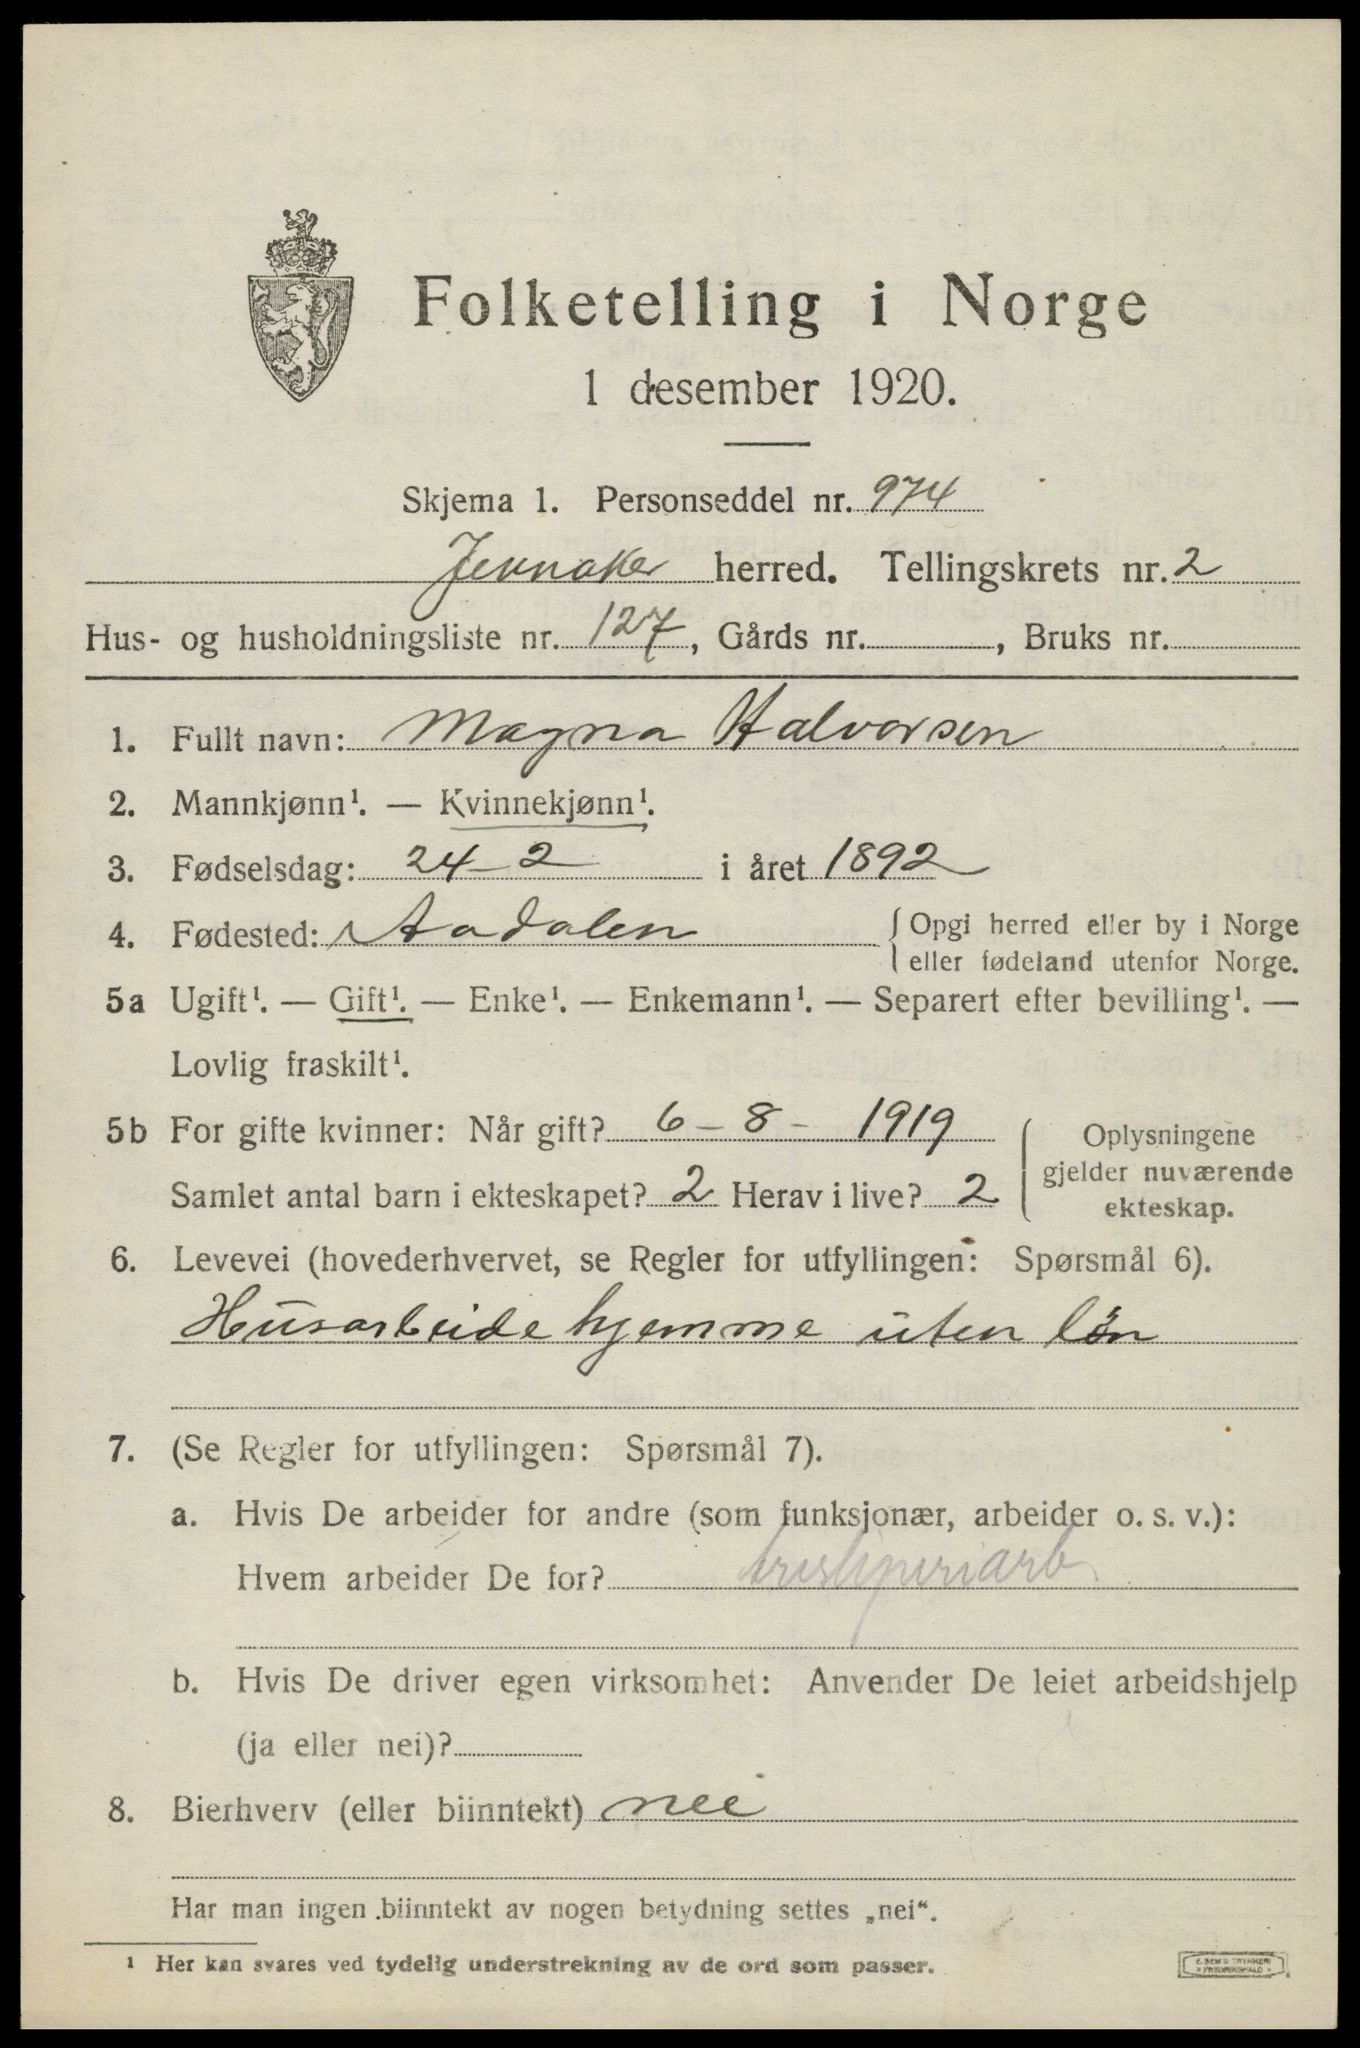 Folketelling i Norge
1 desember 1920.
Skjema 1. Personseddel nr. 974
Jevnaker herred. Tellingskrets nr. 2
Hus- og husholdningsliste nr. 127, Gårds nr. , Bruks nr.
1. Fullt navn: Magna Halvorsen
2. Mannkjønn¹. — Kvinnekjønn¹.
3. Fødselsdag: 24-2 i året 1892
4. Fødested: Aadalen { Opgi herred eller by i Norge
eller fødeland utenfor Norge.
5a Ugift¹. — Gift¹. — Enke¹. — Enkemann¹. — Separert efter bevilling¹. —
Lovlig fraskilt¹.
5b For gifte kvinner: Når gift? 6-8-1919
Samlet antal barn i ekteskapet? 2 Herav i live? 2
Oplysningene
gjelder nuværende
ekteskap.
6. Levevei (hovederhvervet, se Regler for utfyllingen: Spørsmål 6).
Husarbeide hjemme uten løn
7. (Se Regler for utfyllingen: Spørsmål 7).
a. Hvis De arbeider for andre (som funksjonær, arbeider o. s. v.):
Hvem arbeider De for? tresliperiarb
b. Hvis De driver egen virksomhet: Anvender De leiet arbeidshjelp
(ja eller nei)?
8. Bierhverv (eller biinntekt) nei
Har man ingen biinntekt av nogen betydning settes „nei“.
¹ Her kan svares ved tydelig understrekning av de ord som passer.
E. SEM'S TRYKKERI
FREDRIKSHALD